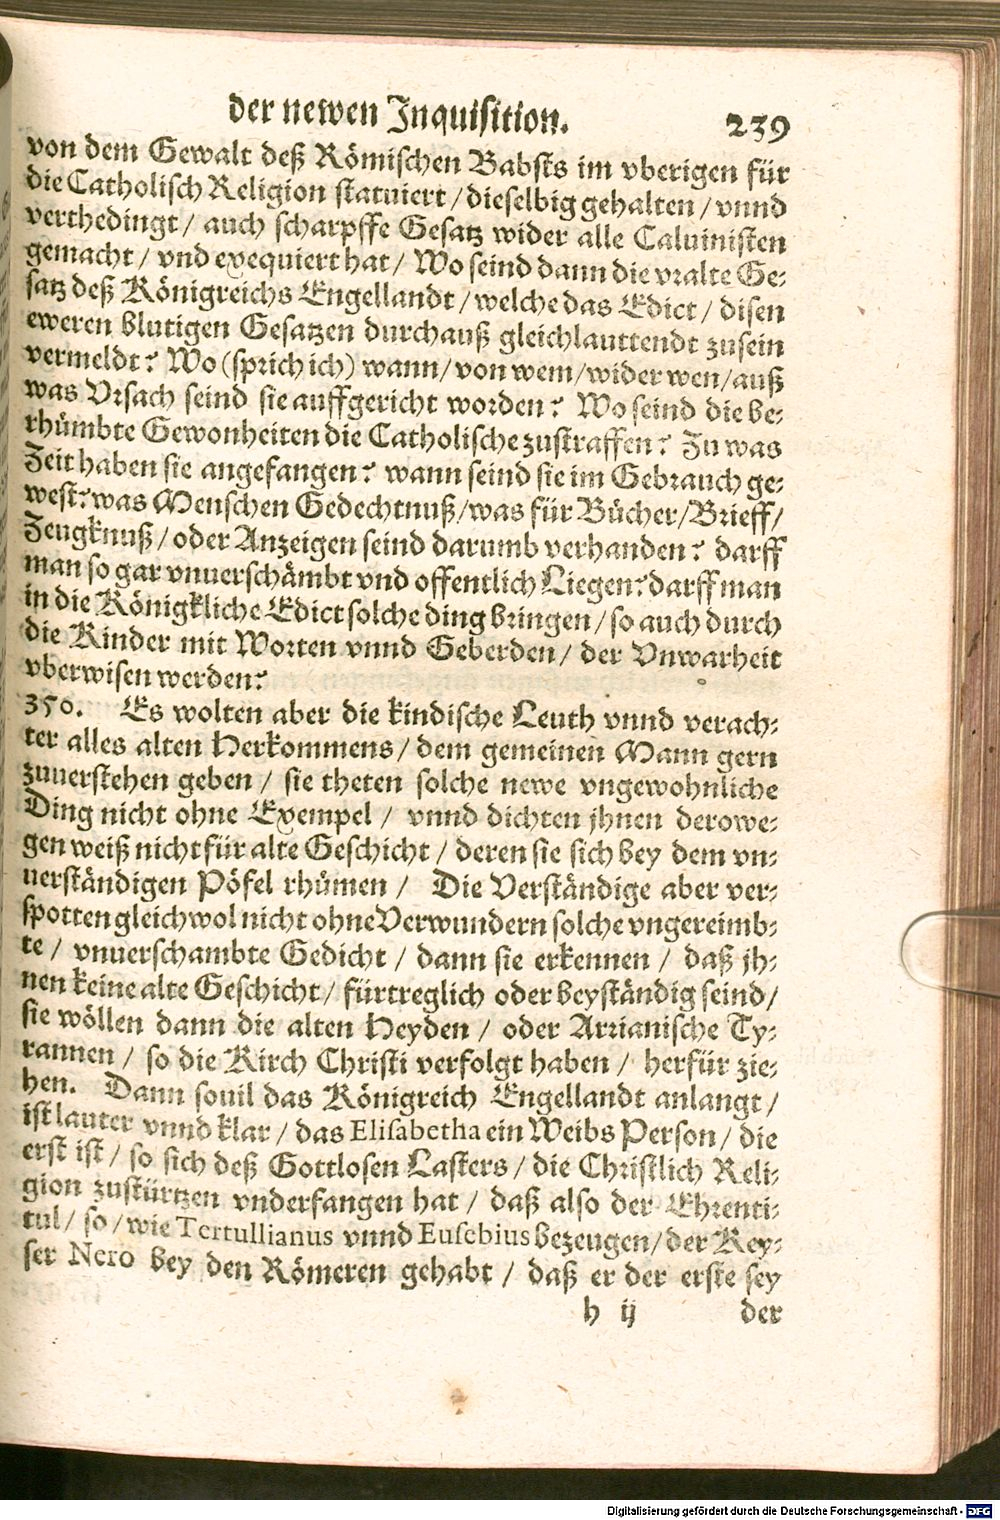 der newen Inquisition. 239
von dem Gewalt deß Römischen Babsts im vberigen für
die Catholisch Religion statuiert / dieselbig gehalten / vnnd
verthedingt / auch scharpffe Gesatz wider alle Caluinisten
gemacht / vnd exequiert hat / Wo seind dann die vralte Ge-
satz deß Königreichs Engellandt / welche das Edict / disen
eweren blutigen Gesatzen durchauß gleichlauttendt zusein
vermeldt? Wo (sprich ich) wann / von wem / wider wen / auß
was Vrsach seind sie auffgericht worden? Wo seind die be-
rhümbte Gewonheiten die Catholische zustraffen? Zu was
Zeit haben sie angefangen? wann seind sie im Gebrauch ge-
west? was Menschen Gedechtnuß / was für Bücher / Brieff /
Zeugknuß / oder Anzeigen seind darumb verhanden? darff
man so gar vnuerschämbt vnd offentlich Liegen? darff man
in die Königkliche Edict solche ding bringen / so auch durch
die Kinder mit Worten vnnd Geberden / der Vnwarheit
vberwisen werden?
350. Es wolten aber die kindische Leuth vnnd verach-
ter alles alten Herkommens / dem gemeinen Mann gern
zuuerstehen geben / sie theten solche newe vngewohnliche
Ding nicht ohne Exempel / vnnd dichten jhnen derowe-
gen weiß nicht für alte Geschicht / deren sie sich bey dem vn-
uerständigen Pöfel rhümen / Die Verständige aber ver-
spotten gleichwol nicht ohne Verwundern solche vngereimb-
te / vnuerschambte Gedicht / dann sie erkennen / daß jh-
nen keine alte Geschicht / fürtreglich oder beyständig seind /
sie wöllen dann die alten Heyden / oder Arrianische Ty-
rannen / so die Kirch Christi verfolgt haben / herfür zie-
hen. Dann souil das Königreich Engellandt anlangt /
ist lauter vnnd klar / das Elisabetha ein Weibs Person / die
erst ist / so sich deß Gottlosen Lasters / die Christlich Reli-
gion zustürtzen vnderfangen hat / daß also der Ehrenti-
tul / so / wie Tertullianus vnnd Eusebius bezeugen / der Key-
ser Nero bey den Römeren gehabt / daß er der erste sey
h ij der
Digitalisierung gefördert durch die Deutsche Forschungsgemeinschaft - DFG